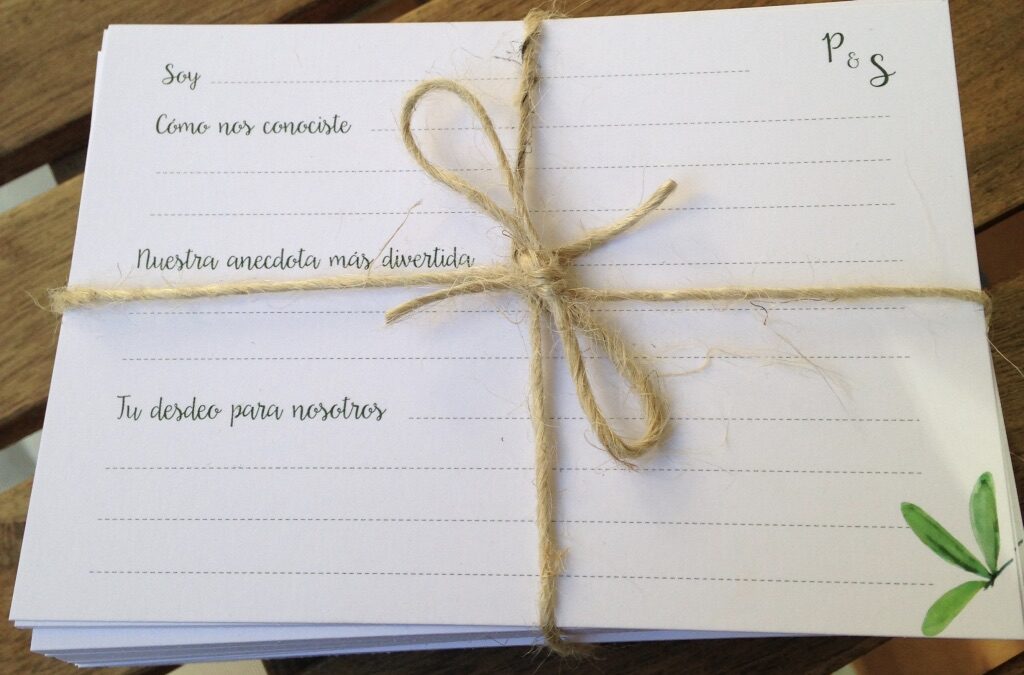 P & S
Soy
Cómo nos conociste
Nuestra anecdota más divertida
Tu desdeo para nosotros